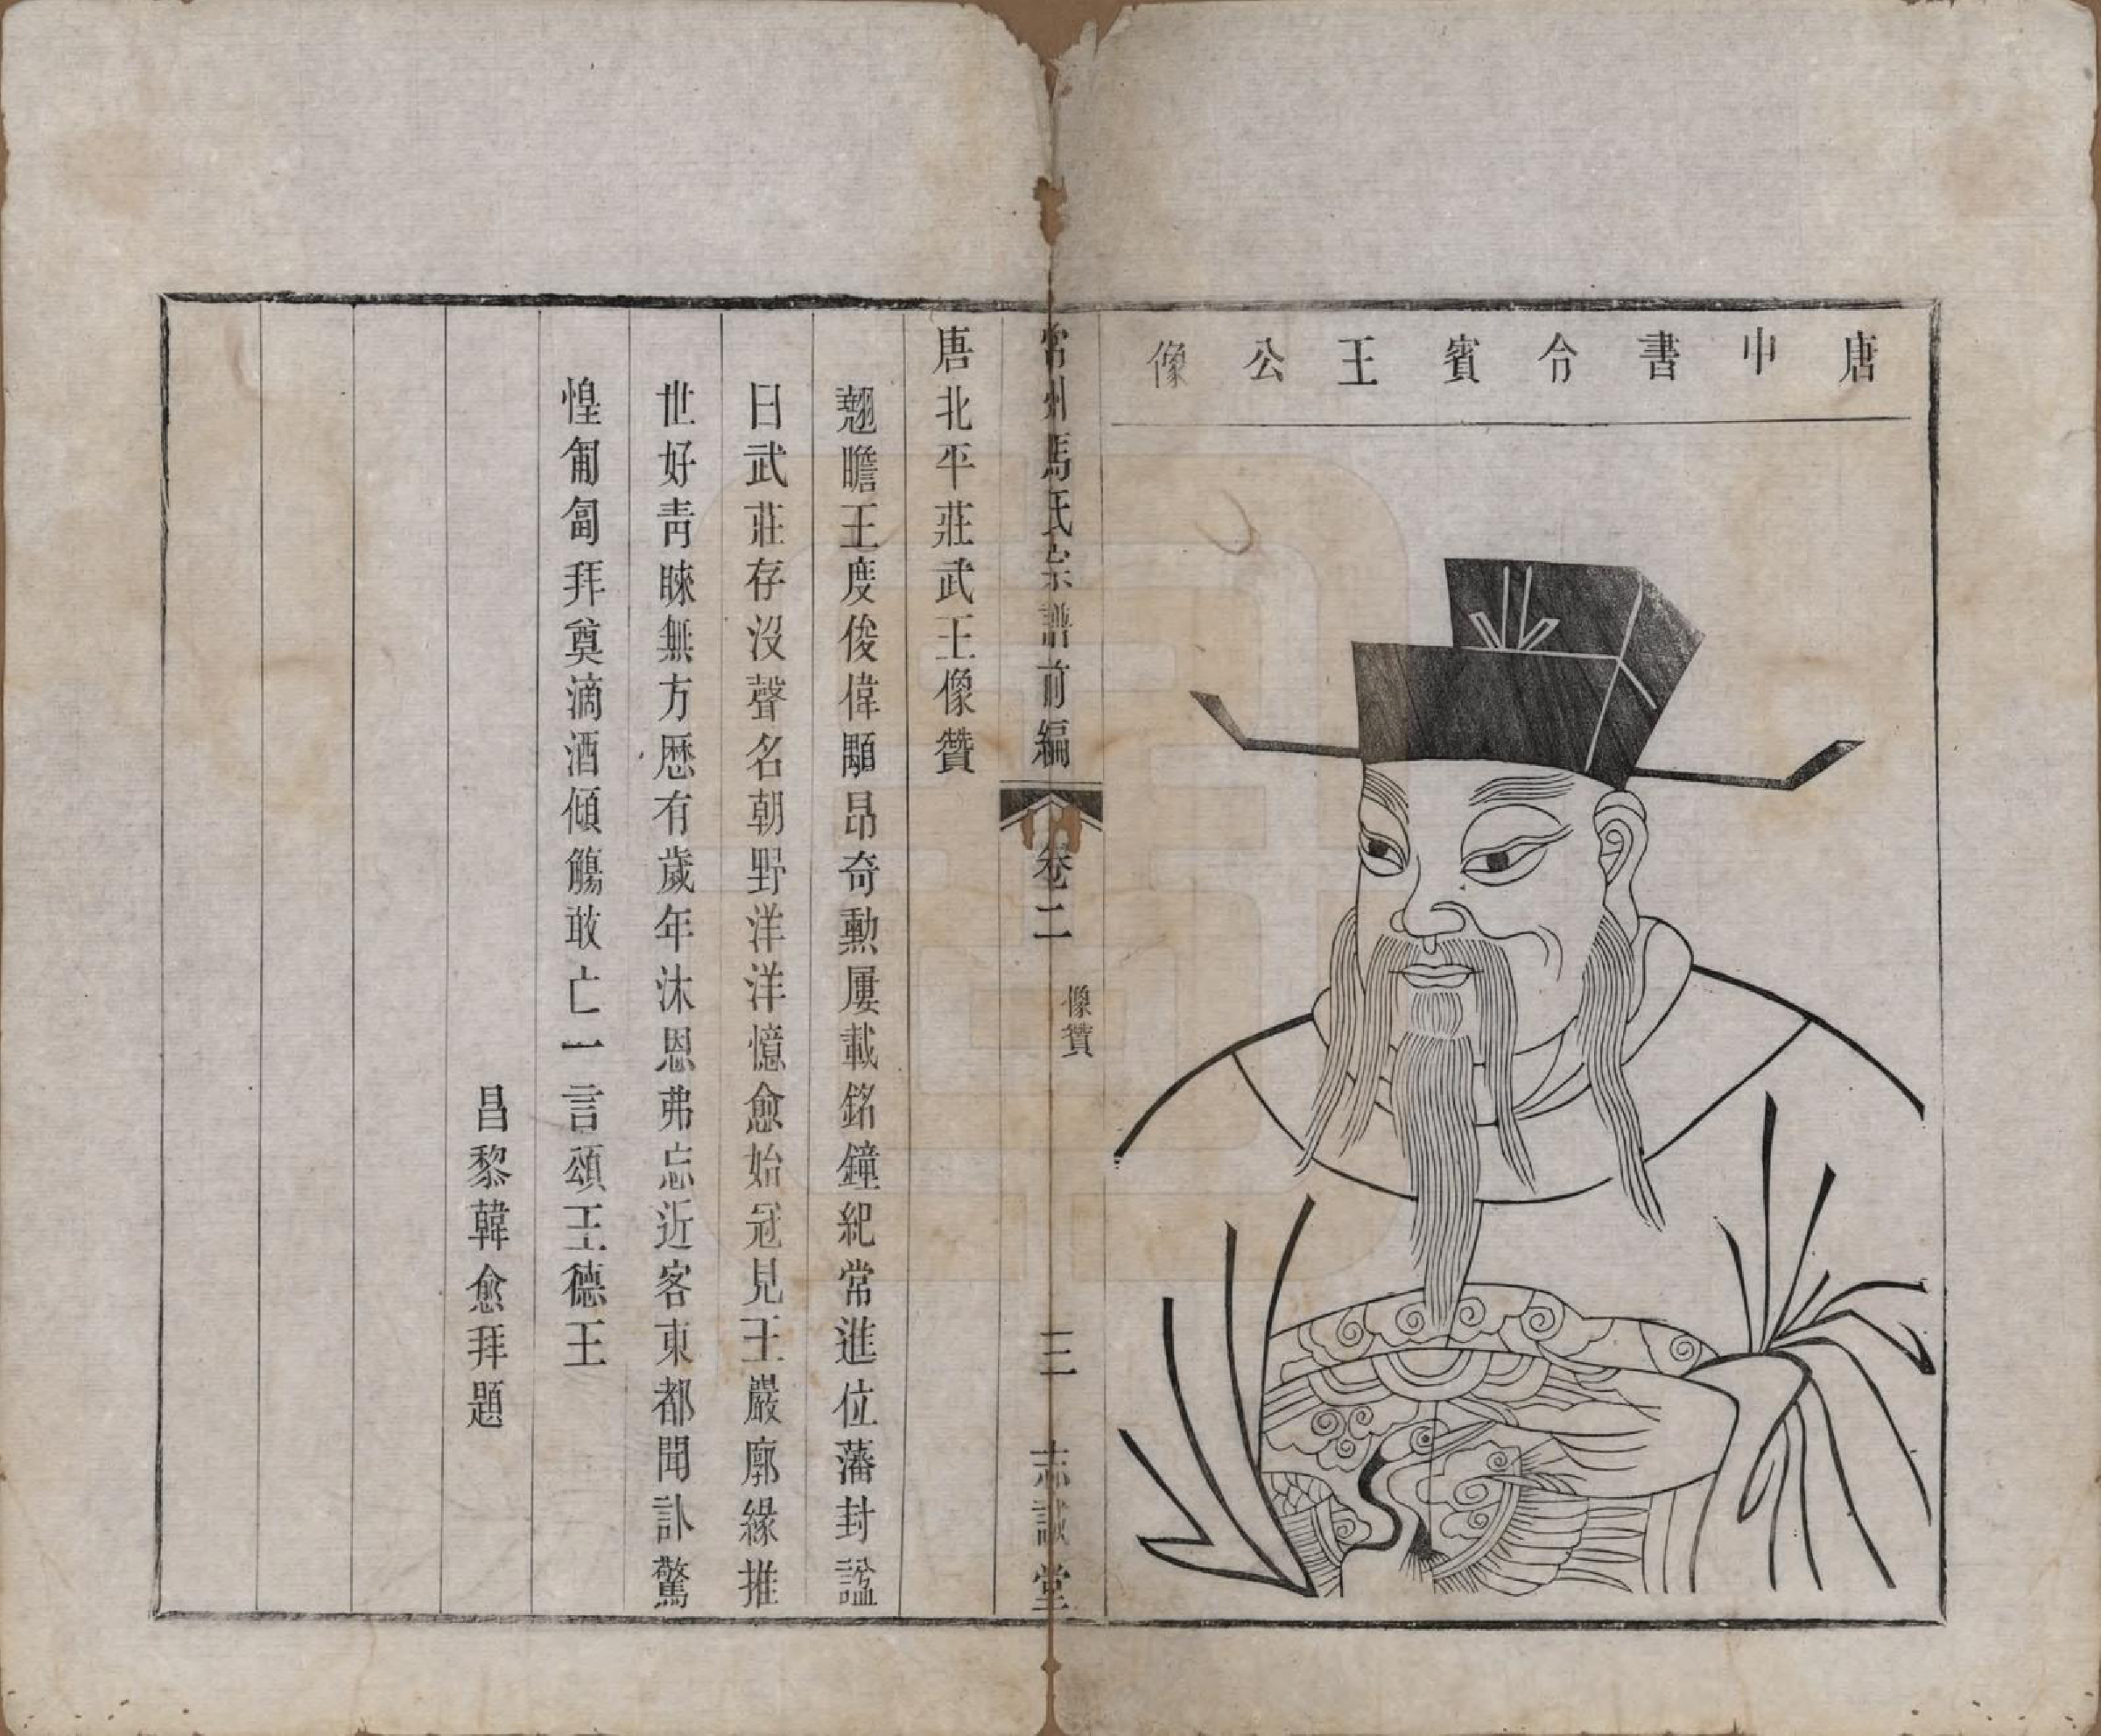 唐中書令賓王公像
常州馬氏宗譜前編 卷二 像贊 三 志誠堂
唐北平莊武王像贊
翹瞻王度俊偉顒昂奇勳屢載銘鐘紀常進位藩封諡
日武莊存沒聲名朝野洋洋憶愈始冠見王嚴廓緣推
世好靑睞無方歷有歲年沐恩弗忘近客東都聞訃驚
惶匍匐拜奠滴酒傾觴敢亡一言頌王德王
昌黎韓愈拜題